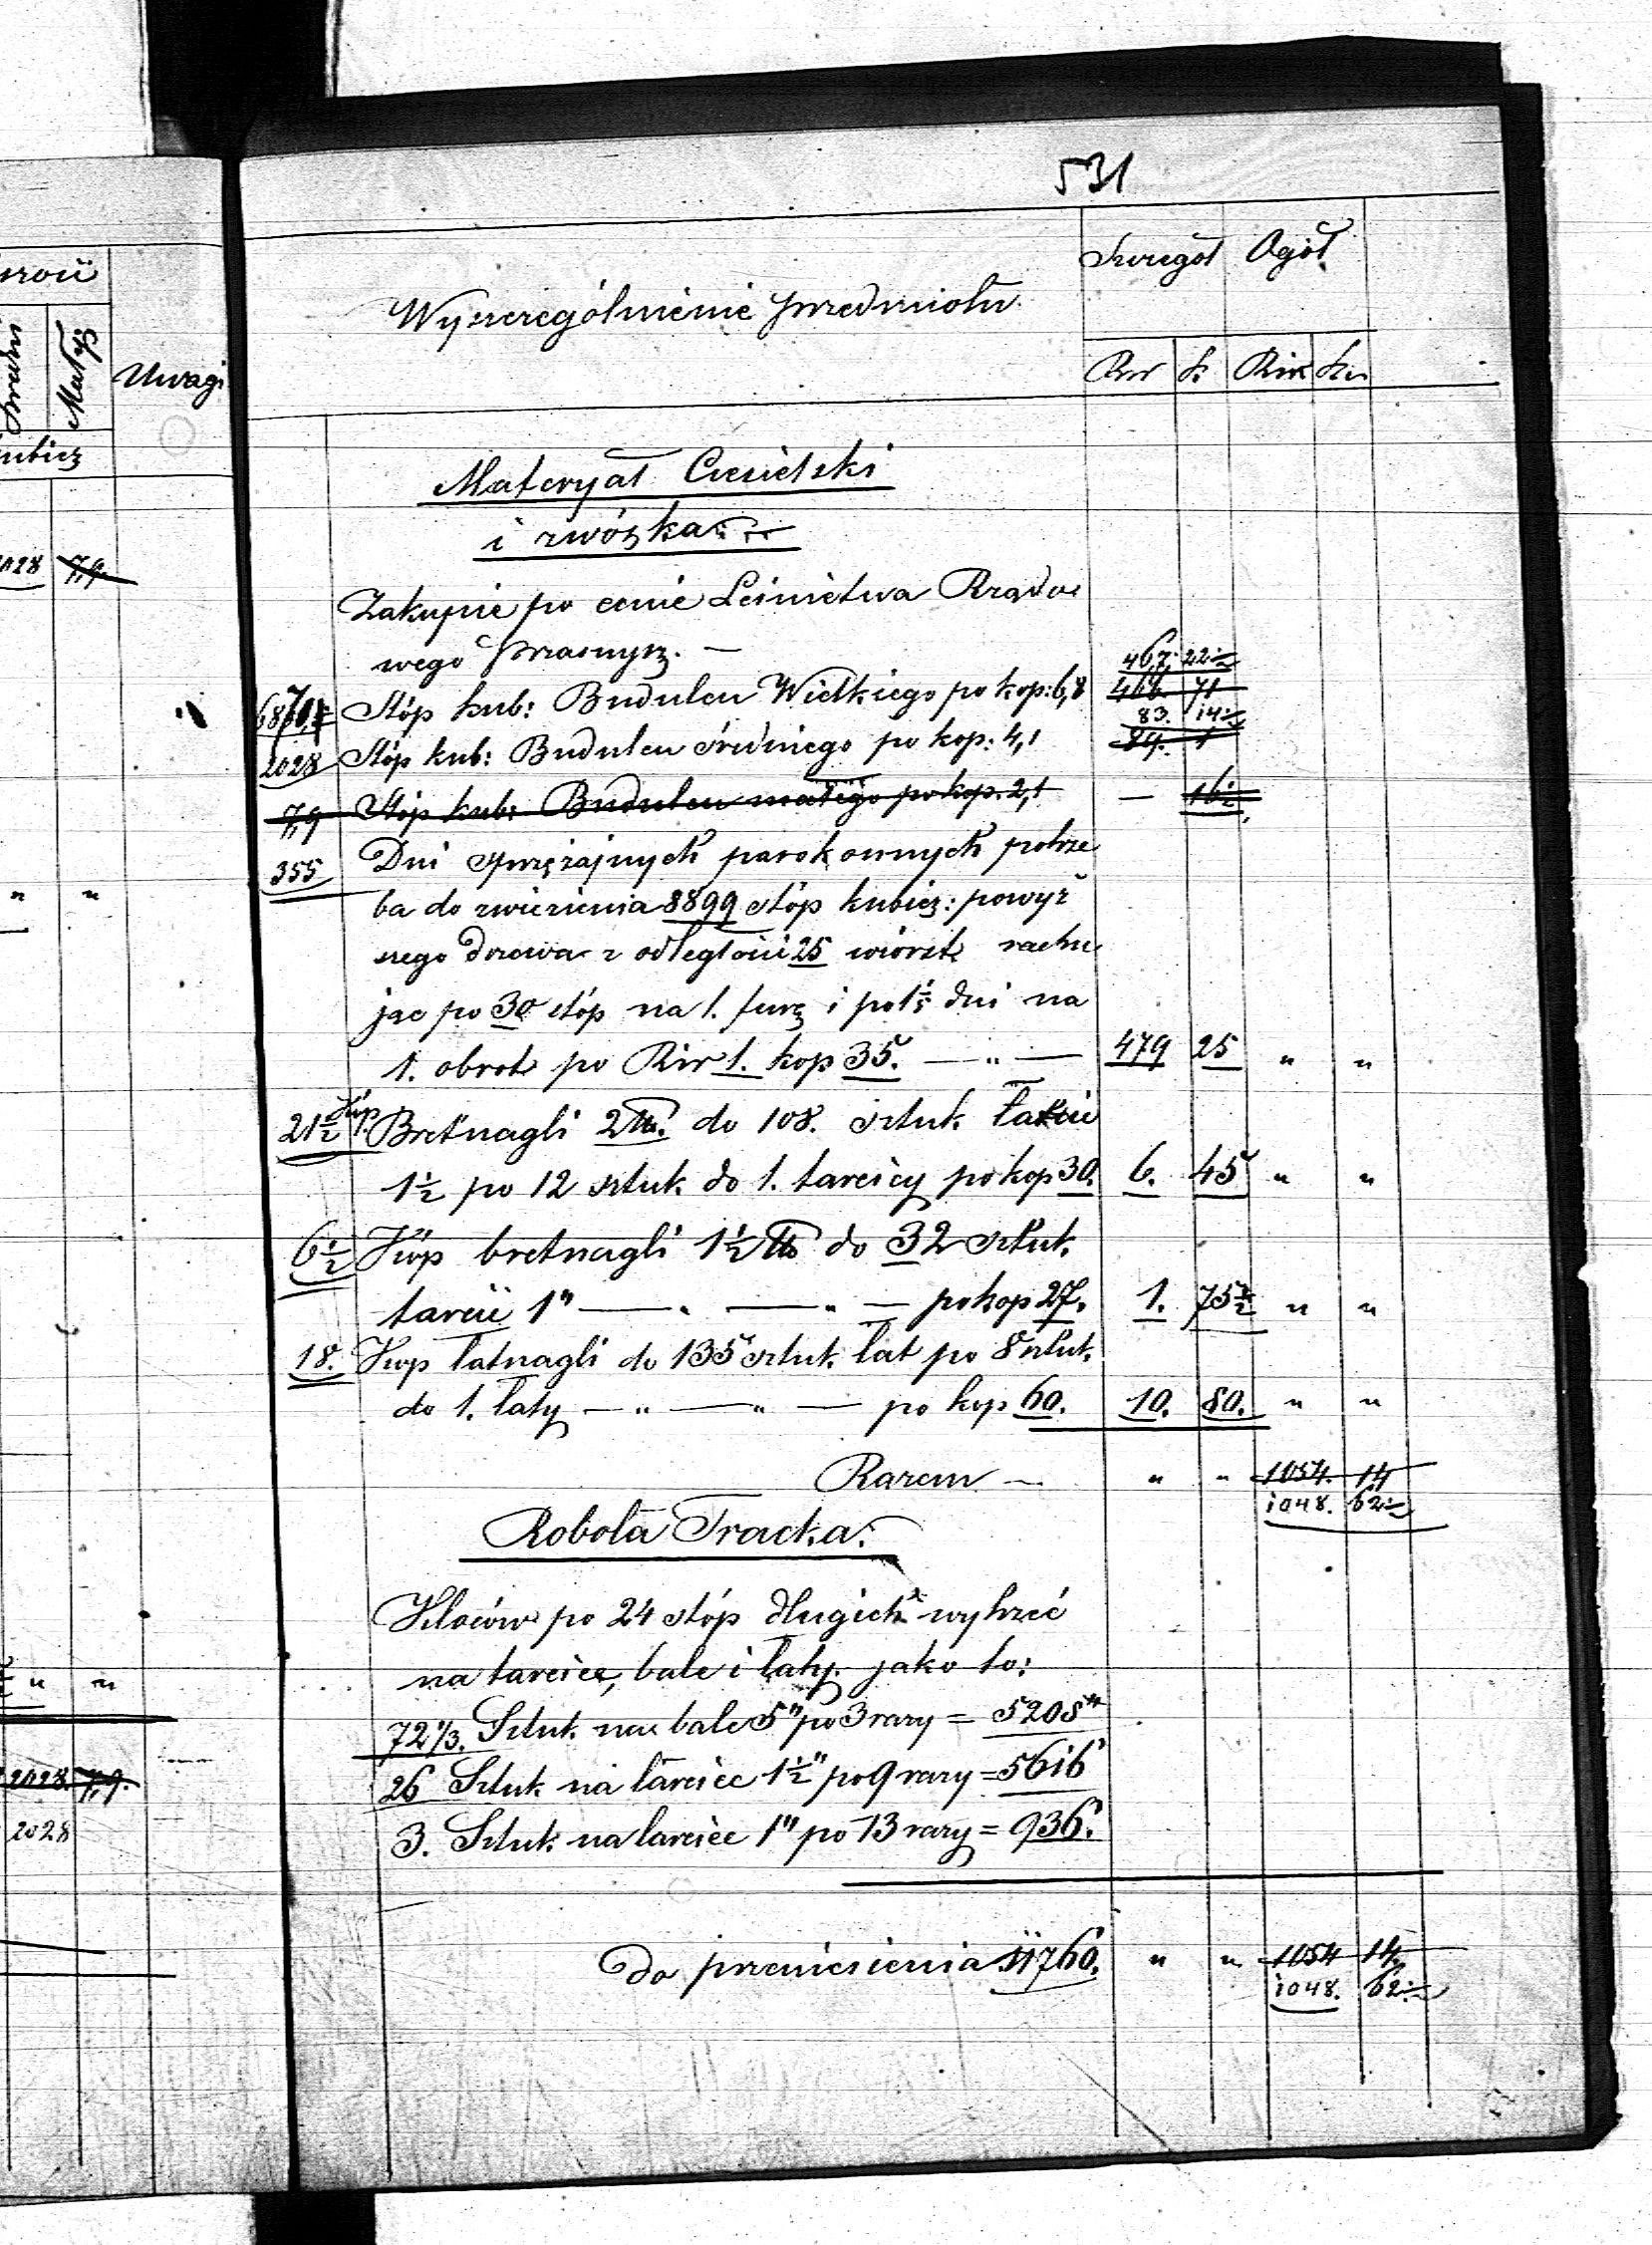 531
Szczegół Ogół
Wyszczególnienie przedmiotu
Rsr k. Rsr k.
Małej
Uwagi
Materyał Ciesielski
i zwózka
2028 7,9.
Zakupie po cenie Leśnictwa Rządo
wego Przasnysz. —
467. 22½
Stóp kub: Budulcu Wielkiego po kop: 6,8 466. 71
83. 14½
2028 Stóp kub: Budulcu średniego po kop: 4,1 84. 1
7,9 Stóp kub: Budulcu małego po kop. 2,1 — 16½
355 Dni sprzężajnych parokonnych potrze
ba do zwiezienia 8899 stóp kubicz: powyż
szego drzewa z odległości 25 wiorst rachu
jąc po 30 stóp na 1. furę i po 1⅕ dni na
1. obrot po Rsr 1. kop 35. — " — 479 25 " "
21½ Kóp. Bretnagli 2 ℔. do 108. sztuk tarcic
1½ po 12 sztuk do 1. tarcicy po kop 30. 6. 45 " "
6½ Kóp bretnagli 1½ ℔ do 32 sztuk.
tarcic 1" — " — " — po kop 27. 1. 75½ " "
18. Kop łatnagli do 135 sztuk łat po 8 sztuk.
do 1. łaty — " — " — po kop 60. 10. 80. " "
Razem — " " 1054. 14
1048. 62½
Robota Tracka.
Kloców po 24 stóp długich wyrżeć
na tarcice, bale i łaty. jako to:
72 1/3. Sztuk na bale 5" po 3 razy = 5208"
26 Sztuk na tarcice 1½" po 9 razy = 5616'
3. Sztuk na tarcice 1" po 13 razy = 936'.
2028. 7,9.
2028
do przeniesienia 11760. " " 1054 14.
1048. 62½